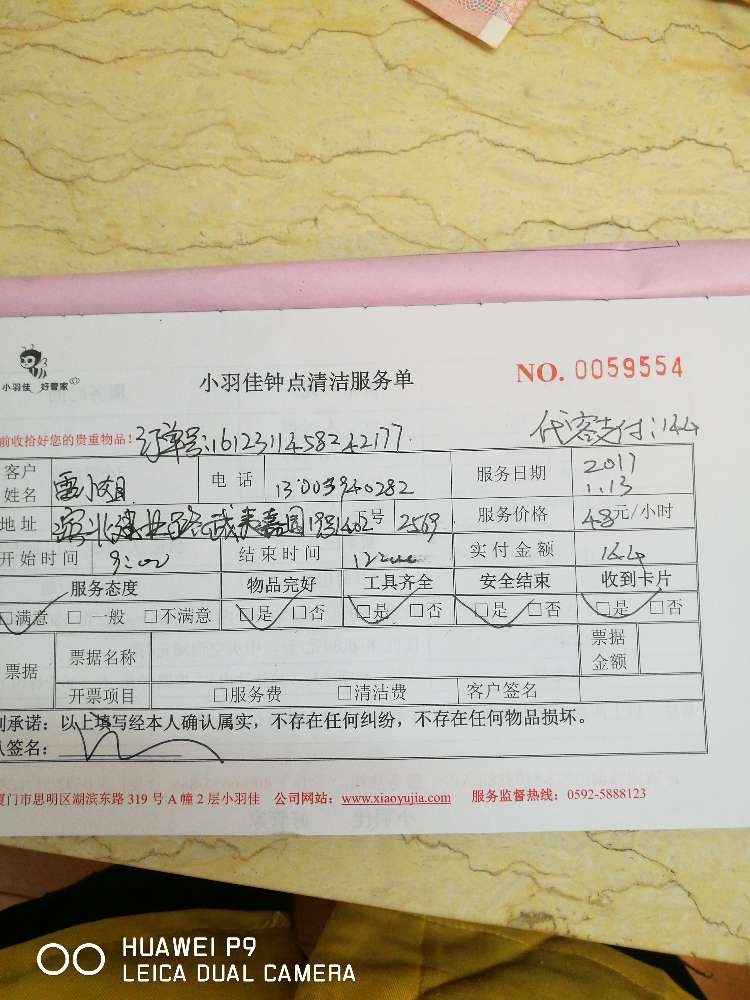 小羽佳 好管家
小羽佳钟点清洁服务单
NO. 0059554
前收拾好您的贵重物品!
订单号:1612311458242177
代客支付:144
客户姓名 雷小姐 电话 服务日期 2017 1.13
地址 滨北建业路 号 2569 服务价格 48元/小时
开始时间 9:00 结束时间 12:00 实付金额 144
服务态度 物品完好 工具齐全 安全结束 收到卡片
□满意 □一般 □不满意 □是 □否 □是 □否 □是 □否 □是 □否
票据 票据名称 票据金额
开票项目 □服务费 □清洁费 客户签名
承诺:以上填写经本人确认属实,不存在任何纠纷,不存在任何物品损坏。
签名:
厦门市思明区湖滨东路 319 号 A 幢 2 层小羽佳 公司网站:www.xiaoyujia.com 服务监督热线:0592-5888123
HUAWEI P9
LEICA DUAL CAMERA